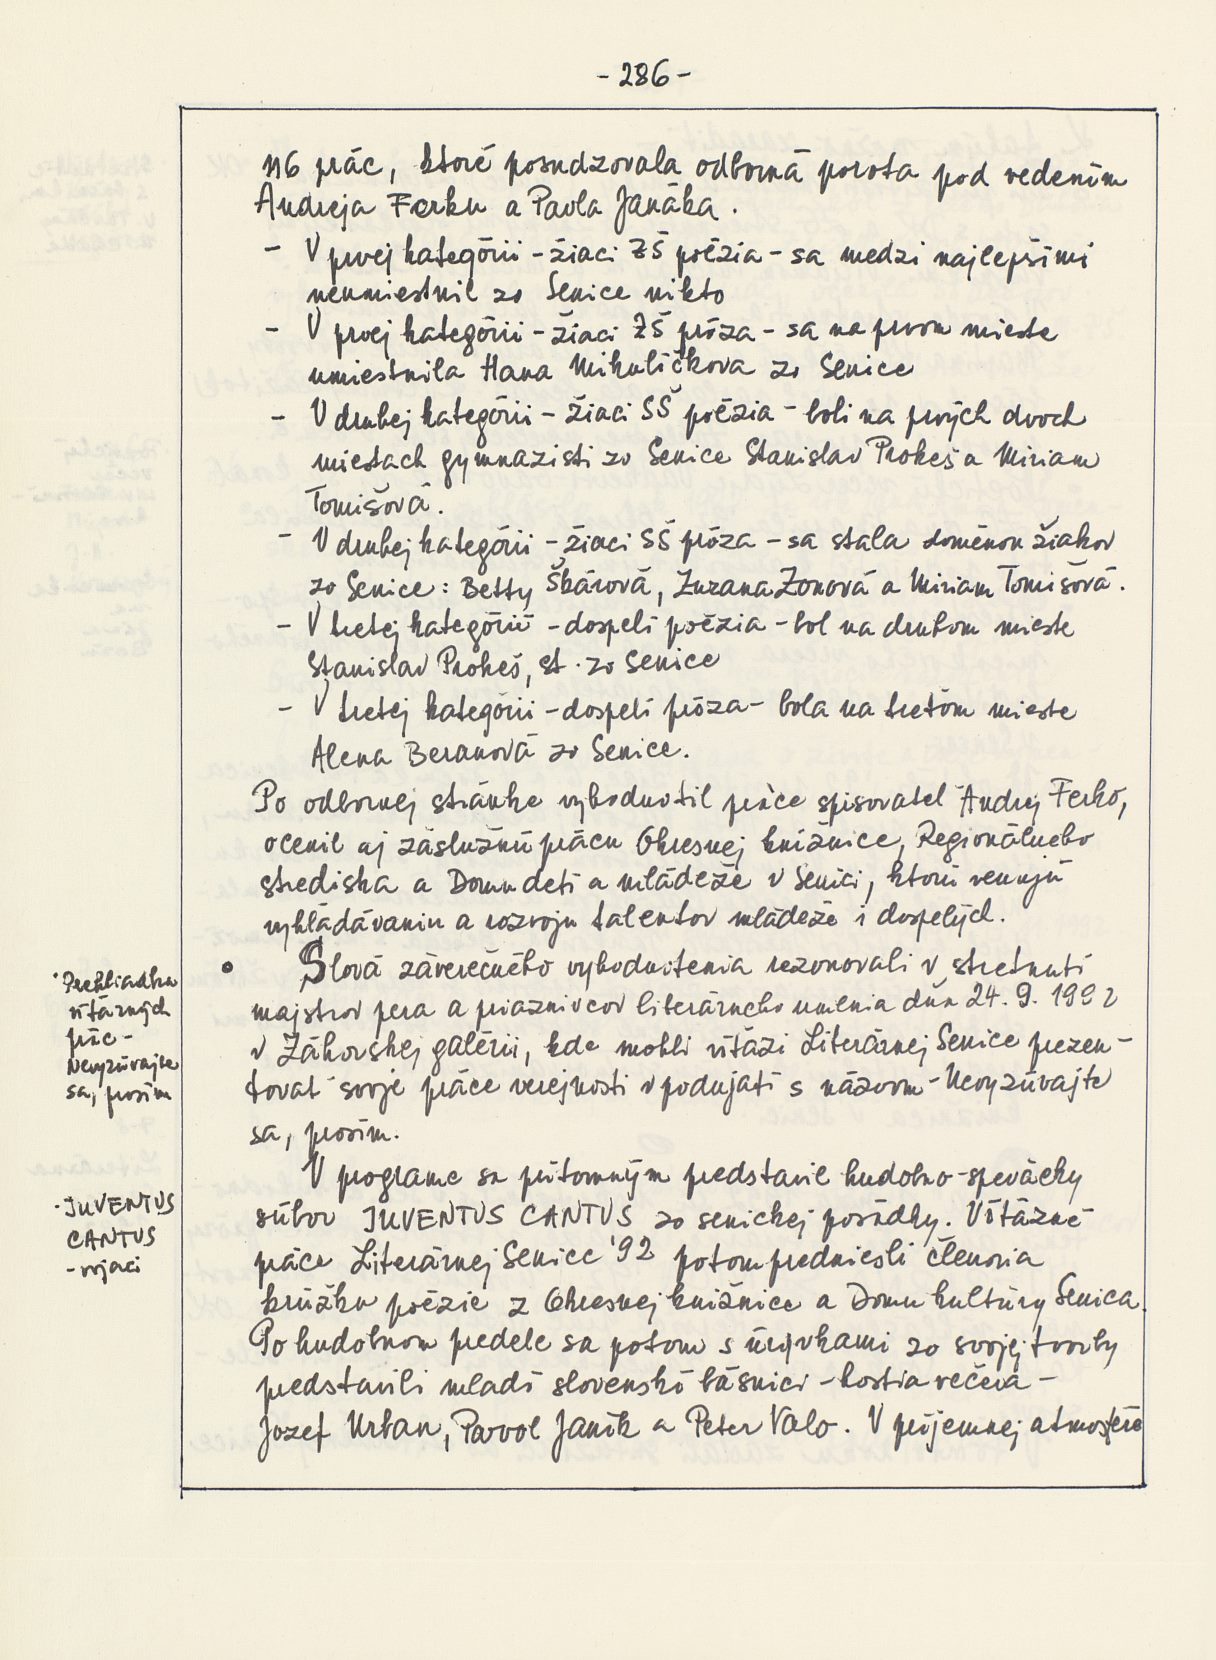 - 286 -
116 prác, ktoré posudzovala odborná porota pod vedením
Andreja Ferku a Pavla Janáka.
- V prvej kategórii - žiaci ZŠ poézia - sa medzi najlepšími
neumiestnil zo Senice nikto
- V prvej kategórii - žiaci ZŠ próza - sa na prvom mieste
umiestnila Hana Mikulíčkova zo Senice
- V druhej kategórii - žiaci SŠ poézia - boli na prvých dvoch
miestach gymnazisti zo Senice Stanislav Prokeš a Miriam
Tomišová.
- V druhej kategórii - žiaci SŠ próza - sa stala doménou žiakov
zo Senice: Betty Škárová, Zuzana Zonová a Miriam Tomišová.
- V tretej kategórií - dospelí poézia - bol na druhom mieste
Stanislav Prokeš, st. zo Senice
- V tretej kategórii - dospelí próza - bola na treťom mieste
Alena Beranová zo Senice.
Po odbornej stránke vyhodnotil práce spisovateľ Andrej Ferko,
ocenil aj záslužnú prácu Okresnej knižnice, Regionálneho
strediska a Domu detí a mládeže v Senici, ktorú venujú
vyhľadávaniu a rozvoju talentov mládeže i dospelých.
• Slová záverečného vyhodnotenia rezonovali v stretnutí
majstrov pera a priaznivcov literárneho umenia dňa 24. 9. 1992
v Záhorskej galérii, kde mohli víťazi Literárnej Senice prezen-
tovať svoje práce verejnosti v podujatí s názvom - Nevyzúvajte
sa, prosím.
· Prehliadka
víťazných
prác -
Nevyzúvajte
sa, prosím
V programe sa prítomným predstavil hudobno-spevácky
súbor JUVENTUS CANTUS zo senickej posádky. Víťazné
práce Literárnej Senice '92 potom predniesli členovia
krúžku poézie z Okresnej knižnice a Domu kultúry Senica.
Po hudobnom predele sa potom s úryvkami zo svojej tvorby
predstavili mladí slovenskí básnici - hostia večera -
Jozef Urban, Pavol Janík a Peter Valo. V príjemnej atmosfére
· JUVENTUS
CANTUS
- vojaci